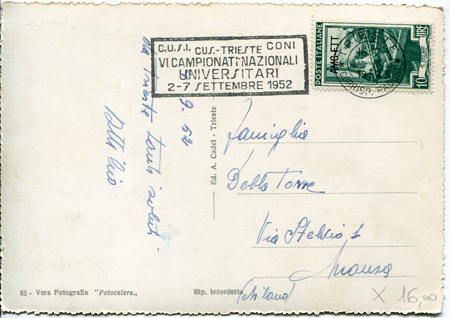 C.U.S.I. CUS-TRIESTE CONI
VI CAMPIONATI NAZIONALI
UNIVERSITARI
2-7 SETTEMBRE 1952
POSTE ITALIANE
AMG-FTT
10 LIRE
9.52
da Trieste tanti saluti
Ed. A. Cadel - Trieste
Famiglia
Della Torre
Via Stelvio
(Milano)
63 - Vera Fotografia "Fotocelere„
Rip. interdetta
X 16,00